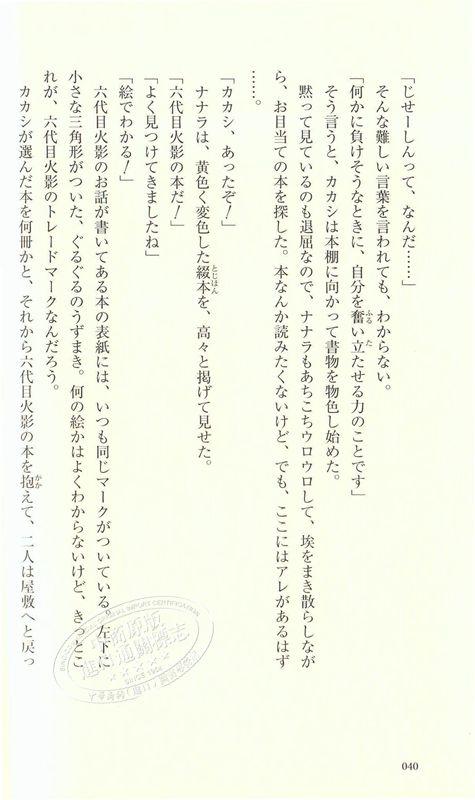 「じせーしんって、なんだ……」
そんな難しい言葉を言われても、わからない。
「何かに負けそうなときに、自分を奮い立たせる力のことです」
そう言うと、カカシは本棚に向かって書物を物色し始めた。
黙って見ているのも退屈なので、ナナラもあちこちウロウロして、埃をまき散らしなが
ら、お目当ての本を探した。本なんか読みたくないけど、でも、ここにはアレがあるはず
……。
「カカシ、あったぞ！」
ナナラは、黄色く変色した綴本を、高々と掲げて見せた。
「六代目火影の本だ！」
「よく見つけてきましたね」
「絵でわかる！」
六代目火影のお話が書いてある本の表紙には、いつも同じマークがついている。左下に
小さな三角形がついた、ぐるぐるのうずまき。何の絵かはよくわからないけど、きっとこ
れが、六代目火影のトレードマークなんだろう。
カカシが選んだ本を何冊かと、それから六代目火影の本を抱えて、二人は屋敷へと戻っ
040